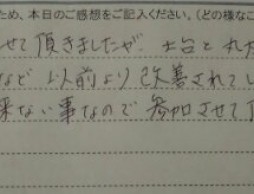 ため、本日のご感想をご記入ください。(どの様なご
せて頂きましたが、土台と
など 以前より改善されてし
来ない事なので 参加させて頂